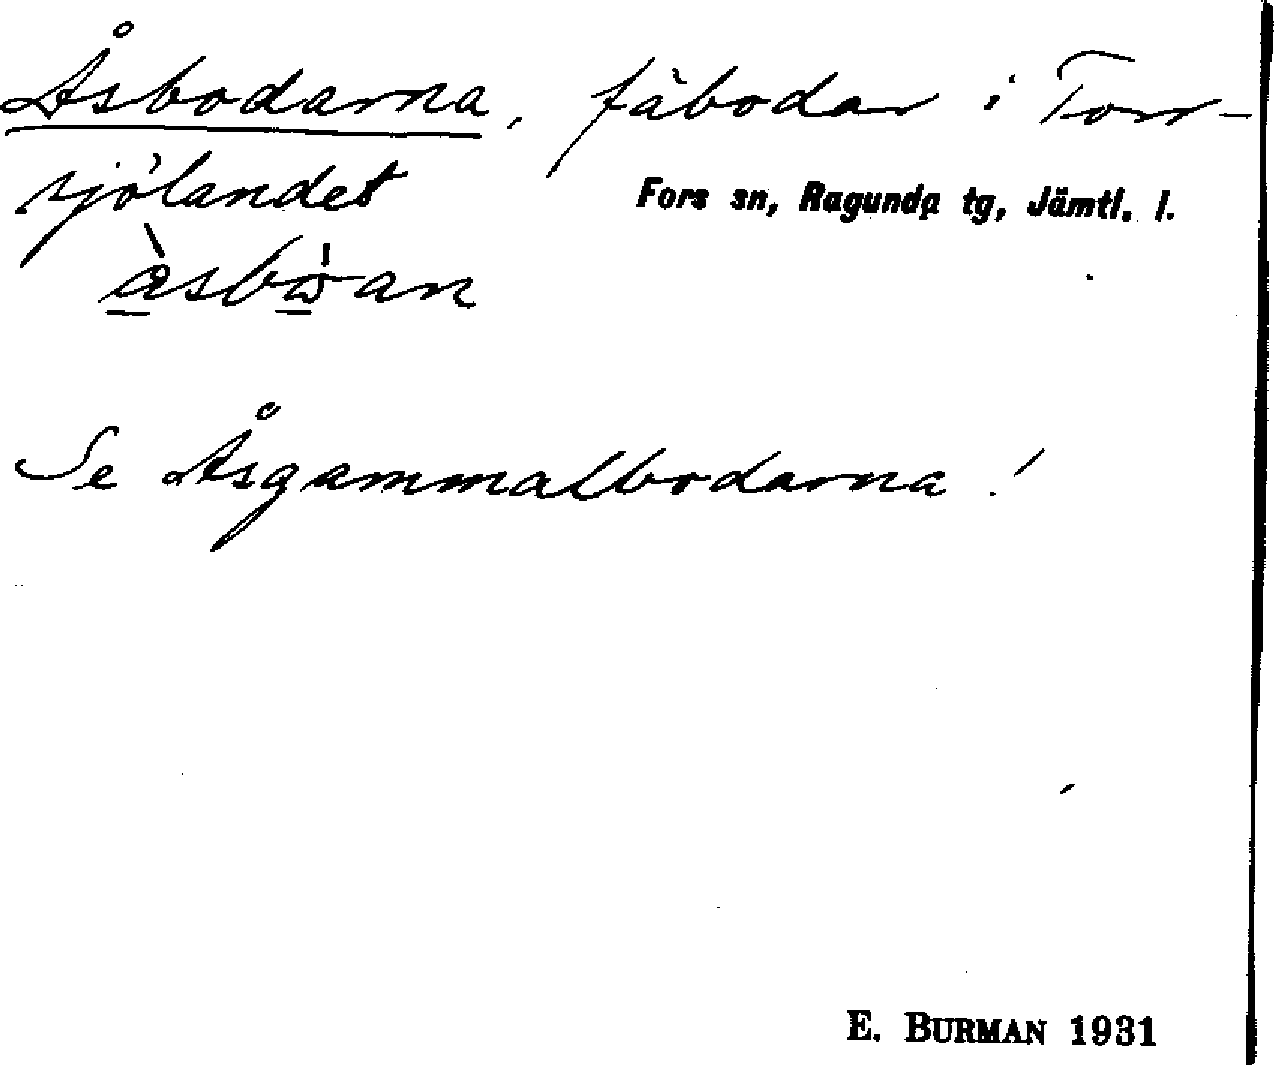 Åsbodarna, fäbodar i Torr-
sjölandet
Fors sn, Ragunda tg, Jämtl. l.
Se Åsgammalbodarna!
E. BURMAN 1931